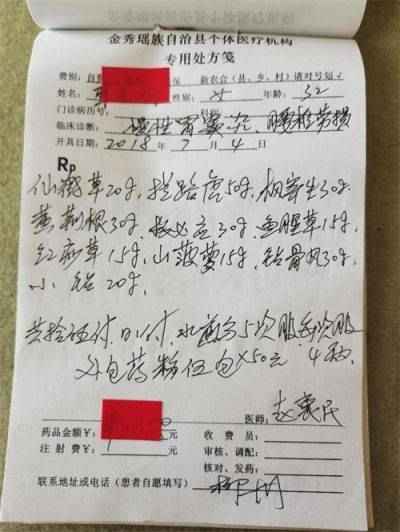 金秀瑶族自治县个体医疗机构
专用处方笺
费别：自费 新农合(县、乡、村)请对号
姓名： 性别：女 年龄：52
门诊病历号： 科别：
临床诊断：慢性胃窦炎、腰椎劳损
开具日期：2018年7月4日
Rp
仙鹤草20g. 拦路虎50g. 桐寄生30g.
黄荆根30g. 救必应30g. 鱼腥草15g.
15g. 山菠萝15g. 钻骨风30g.
小钻20g.
共拾伍付. 日1付. 水煎分5次服 每次服
外包药粉伍包×50元
医师：赵
药品金额¥： 元 收费员：
注射费¥： 元 审核、调配：
核对、发药：
联系地址或电话（患者自愿填写） 柳州